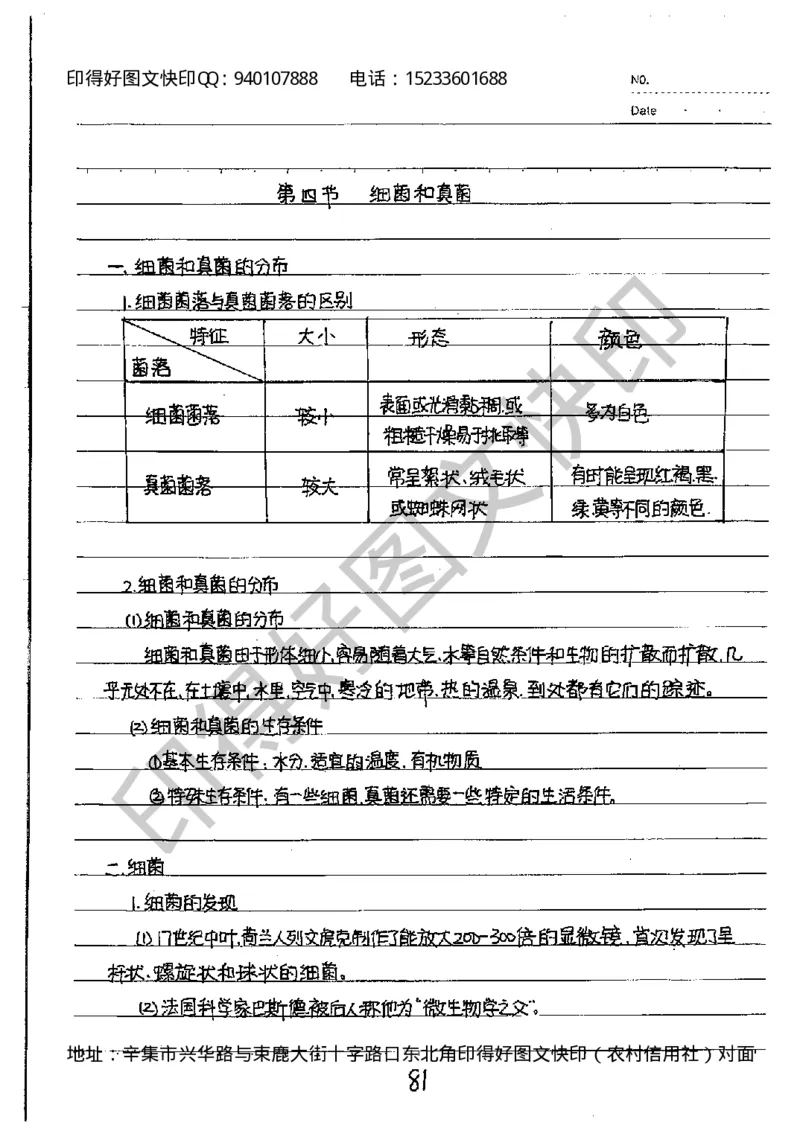 印得好图文快印QQ：940107888 电话：15233601688
NO.
Date
第四节 细菌和真菌
一、细菌和真菌的分布
1.细菌菌落与真菌菌落的区别
特征 大小 形态 颜色
菌落
细菌菌落 较小 表面或光滑黏稠.或粗糙干燥易于挑取等 多为白色
真菌菌落 较大 常呈絮状、绒毛状或蜘蛛网状 有时能呈现红褐.黑.绿.黄等不同的颜色.
2.细菌和真菌的分布
(1)细菌和真菌的分布
细菌和真菌由于形体细小,容易随着大气.水等自然条件和生物的扩散而扩散.几
乎无处不在.在土壤中.水里.空气中.寒冷的地带.热的温泉.到处都有它们的踪迹。
(2)细菌和真菌的生存条件
①基本生存条件：水分.适宜的温度.有机物质
②特殊生存条件：有一些细菌.真菌还需要一些特定的生活条件。
二.细菌
1.细菌的发现
(1)17世纪中叶,荷兰人列文虎克制作了能放大200-300倍的显微镜.首次发现了呈
杆状.螺旋状和球状的细菌。
(2)法国科学家巴斯德被后人称他为“微生物学之父”。
地址：辛集市兴华路与束鹿大街十字路口东北角印得好图文快印（农村信用社）对面
81
印得好图文快印